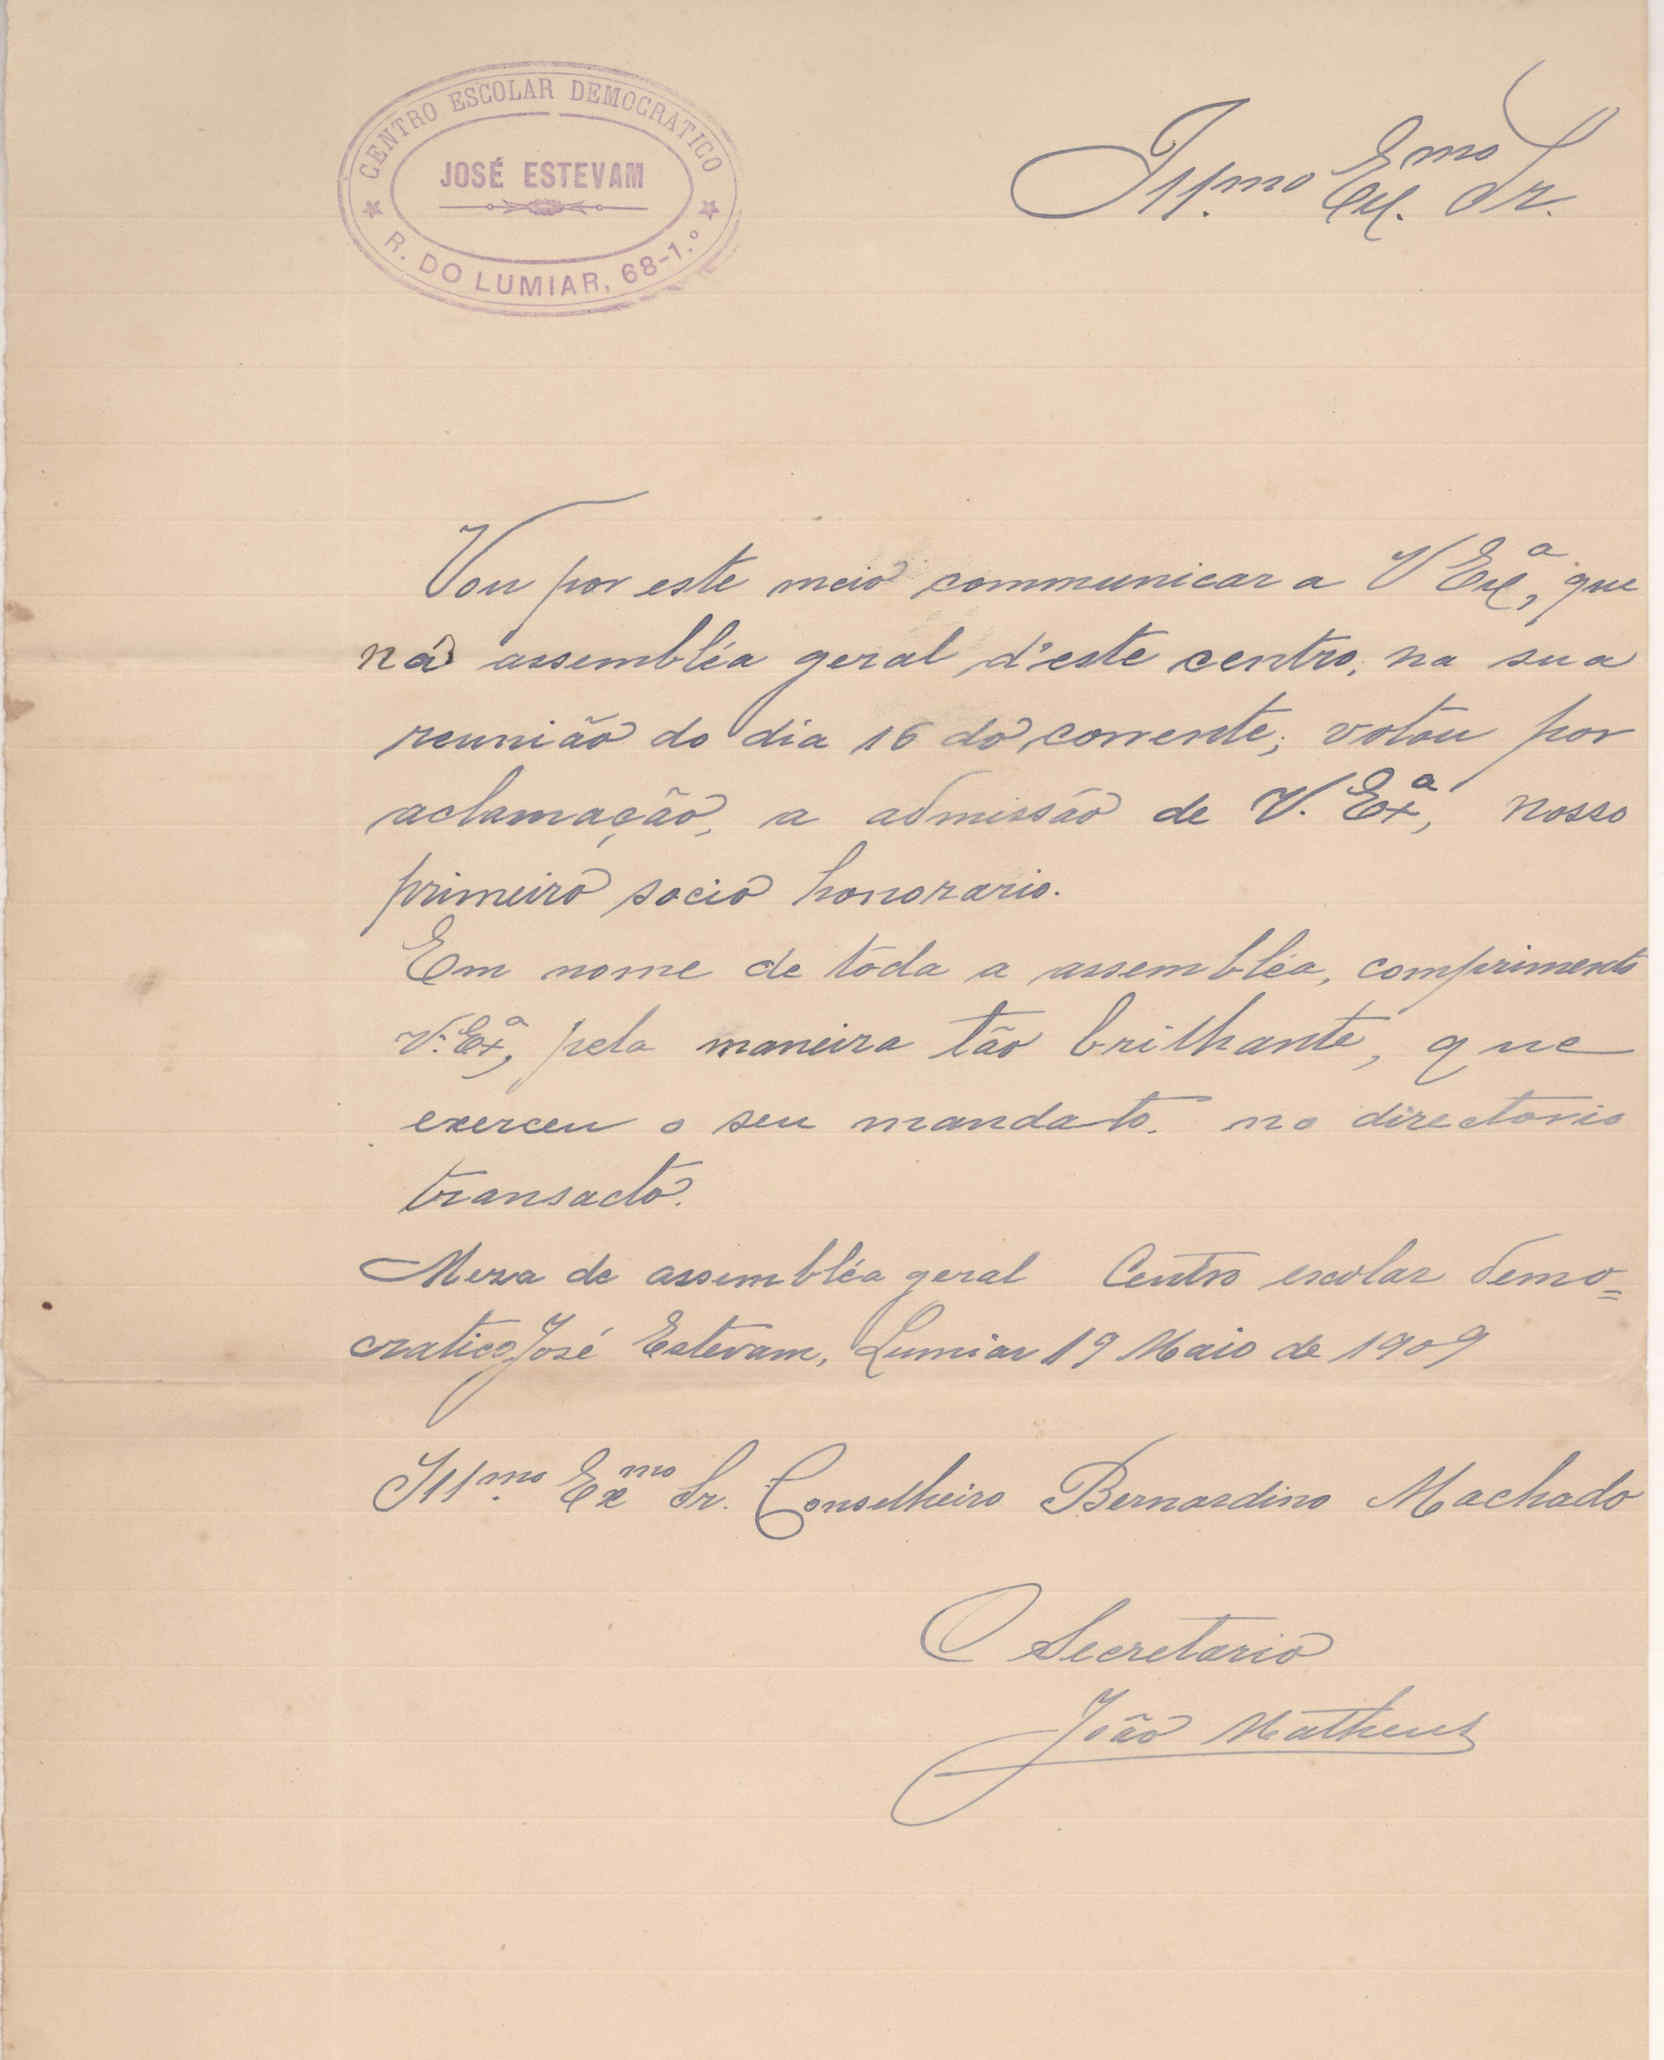 CENTRO ESCOLAR DEMOCRATICO
JOSÉ ESTEVAM
R. DO LUMIAR, 68-1.º
Ill.mo Ex.mo Sr.
Vou por este meio communicar a V Ex.a, que
na assembléa geral d'este centro, na sua
reunião do dia 16 do corrente, votou por
aclamação, a admissão de V. Exa, nosso
primeiro socio honorario.
Em nome de toda a assembléa, comprimento
V. Exa, pela maneira tão brilhante, que
exerceu o seu mandato. no directorio
transacto.
Meza de assembléa geral Centro escolar demo=
cratico José Estevam, Lumiar 19 Maio de 1909
Ill.mo Exmo Sr. Conselheiro Bernardino Machado
O Secretario
João Matheus